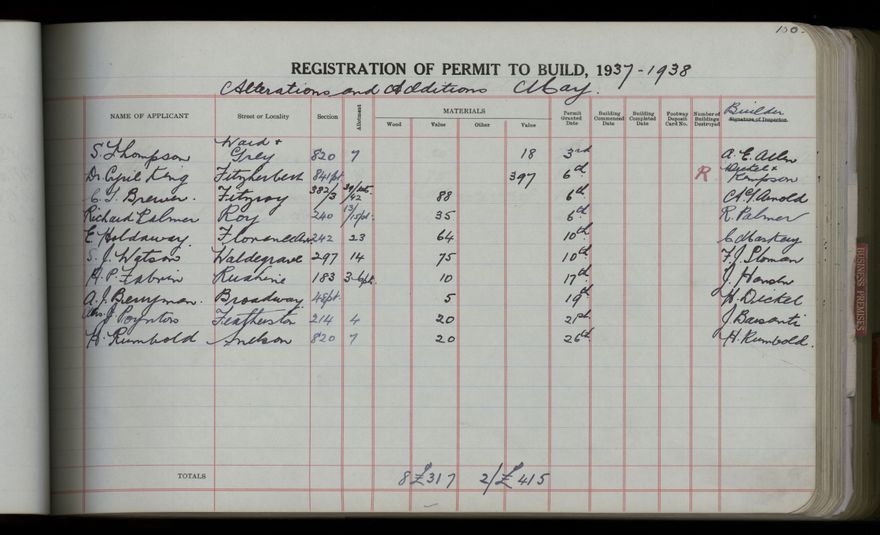 150.
REGISTRATION OF PERMIT TO BUILD, 1937-1938
Alterations and Additions May.
NAME OF APPLICANT Street or Locality Section Allotment MATERIALS Wood Value Other Value Permit Granted Date Building Commenced Date Building Completed Date Footway Deposit Card No. Number of Buildings Destroyed Builder Signature of Inspector
S. Thompson Ward & Grey 820 7 18 3rd A. E. Allen
Dr. Cyril King Fitzherbert 841pt. 397 6th R Dickel & Kempson
C. J. Brewer. Fitzroy 382/3 88 6th Arnold
Richard Palmer Roy 240 13/15pt. 35 6th R. Palmer
E. Holdaway. Florence Av 242 23 64 10th C Maskery
S. J. Watson Waldegrave 297 14 75 10th F. J. Sloman
A. P. Fabrin Ruahine 183 3-6pt. 10 17th J.
A. J. Berryman. Broadway 48pt. 5 19th H. Dickel
Mrs. J. Poynton Featherston 214 4 20 21st J. Baisanti
H. Rumbold Snelson 820 7 20 26th H. Rumbold.
TOTALS 8 £317 2/£415
BUSINESS PREMISES